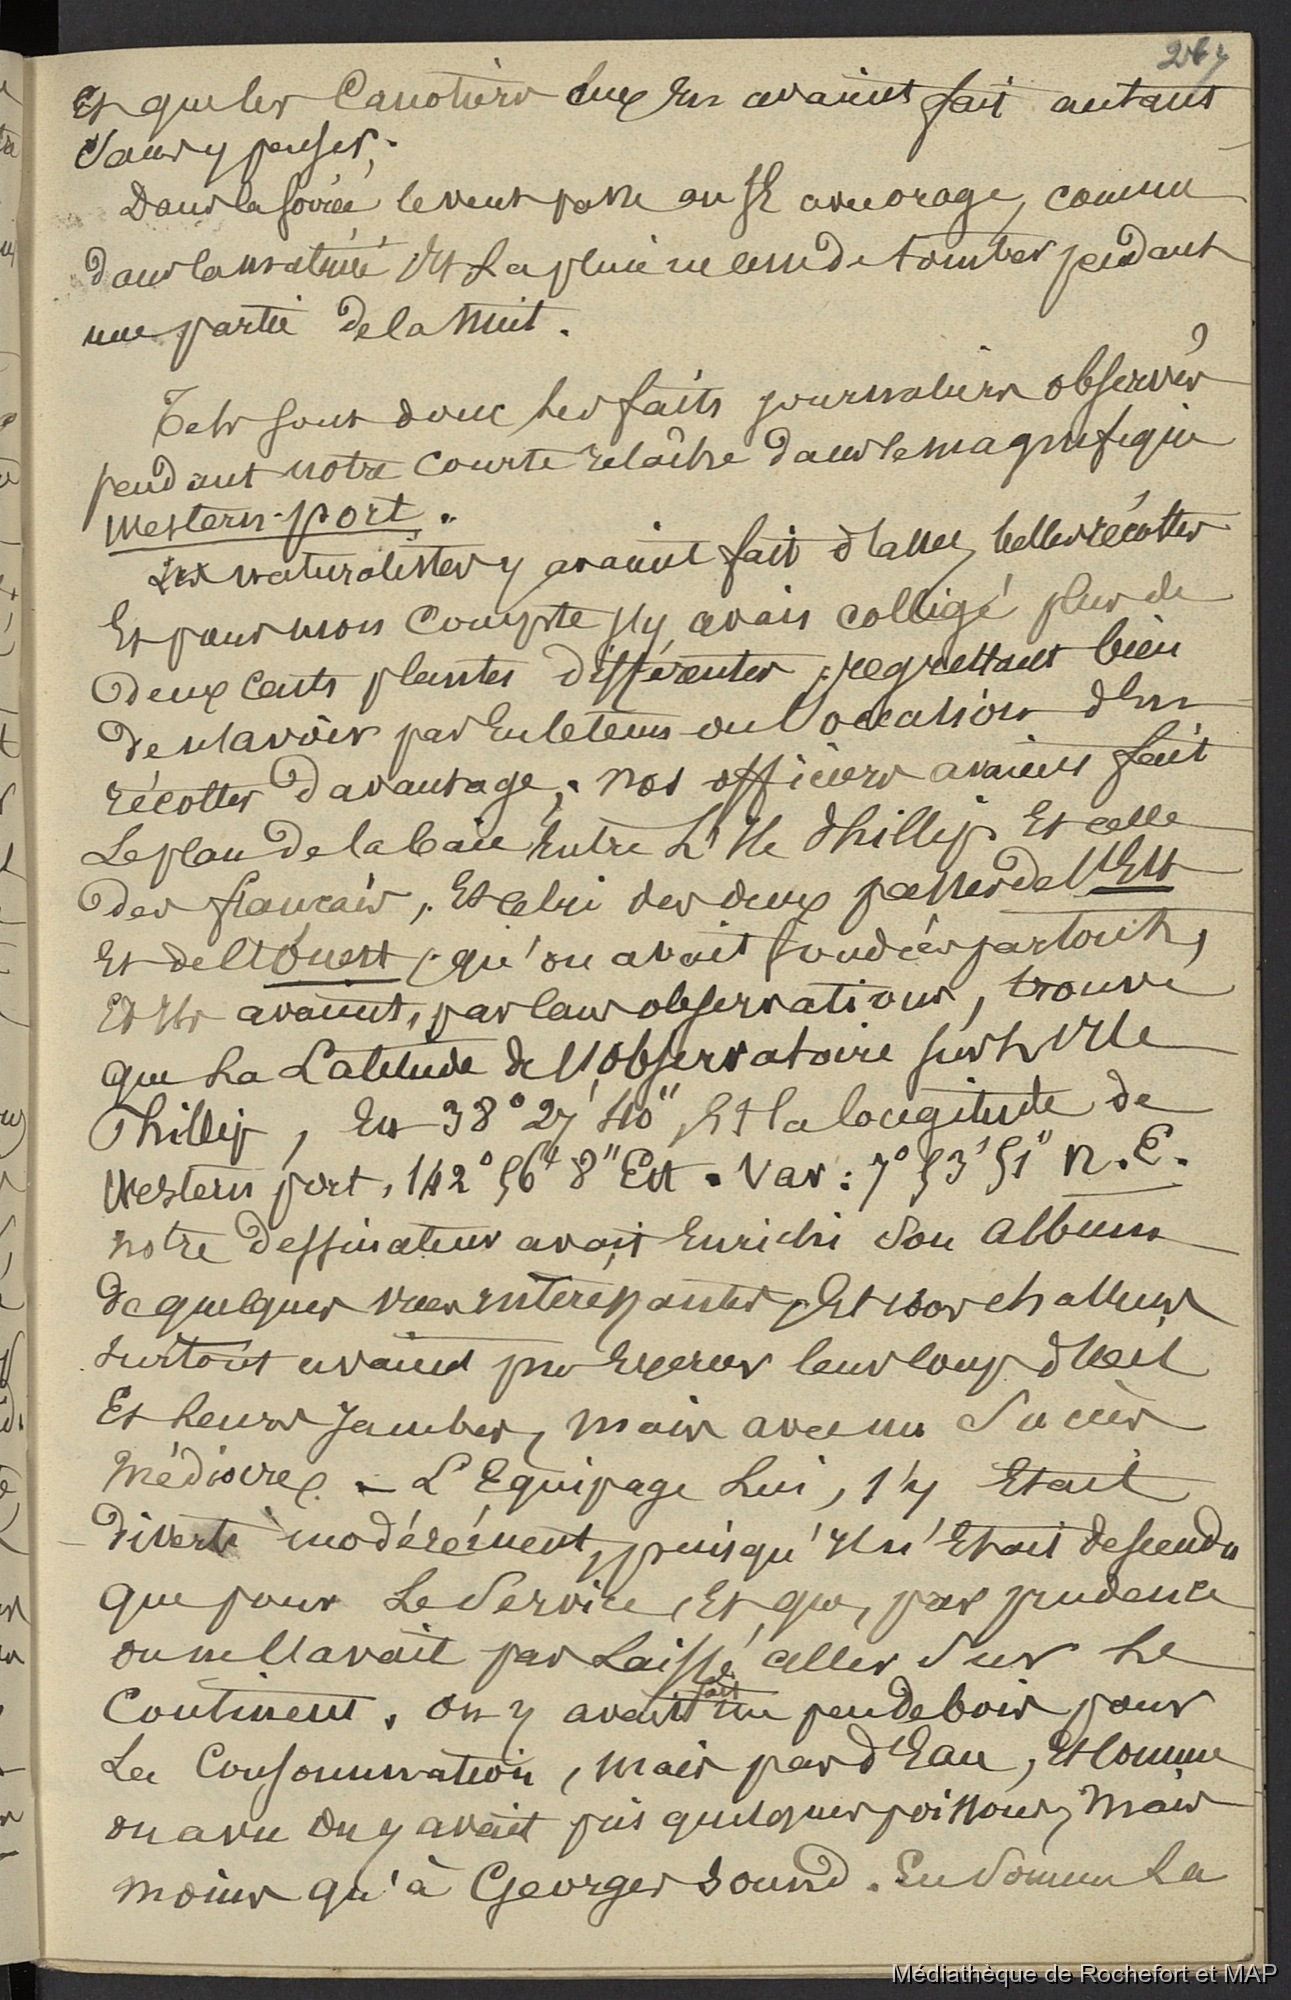 267
Et que les Canotiers Eux En avaient fait autant
sans y penser,.
Dans la soirée le vent passe au SE avec orage, comme
dans la matinée Et La pluie ne cesse de tomber pendant
une partie de la Nuit.
Tels sont donc Les faits journaliers observés
pendant notre courte relâche dans le magnifique
Western-port.
Les naturalistes y avaient fait d'assez belles récoltes
Et pour mon Compte J'y avais colligé plus de
Deux Cents plantes différentes, regrettant bien
de n'avoir pas Eu le tems ou l'occasion d'En
récolter Davantage,. Nos officiers avaient fait
Le plan de la baie Entre L'Ile Phillip Et celle
des français, Et celui des deux passes de l'Est
Et de l'Ouest, qu'on avait sondées partout,
Et Ils avaient, par leurs observations, trouvé
que La Latitude de l'Observatoire sur L'Ile
Phillip, Est 38° 27' 40" Et la longitude de
Western port, 142° 56' 8" Est. Var: 7° 53' 51" N.E.
Notre dessinateur avait Enrichi son album
de quelques vues intéressantes, Et nos chasseurs
surtout avaient pu Exercer leur coup d'œil
Et Leurs Jambes, mais avec un succès
Médiocre. - L'Equipage Lui, s'y Etait
diverti modérément, puisqu'Il n'Etait descendu
que pour Le Service, Et que, par prudence
on ne l'avait pas Laissé aller sur Le
Continent. On y avait fait un peu de bois pour
La Consommation, mais pas d'Eau, Et Comme
on a vu On y avait pris quelques poissons, Mais
moins qu'à Georges Sound. En Somme La
Médiathèque de Rochefort et MAP